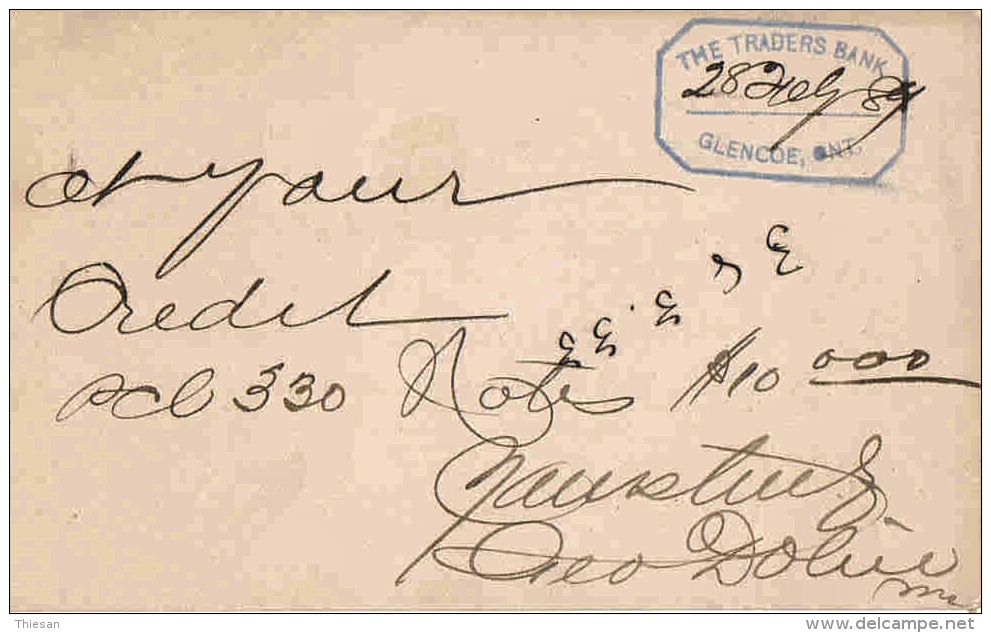 THE TRADERS BANK
28 Feby 89
GLENCOE, ONT.
at your
Credit
pcl 330 Notes $10 000
Yours truly
Geo Dobie
Thiesan
www.delcampe.net